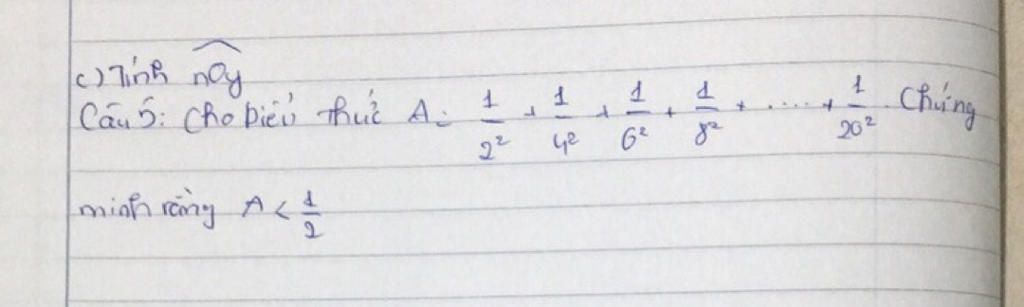 c) Tính nOy
Câu 5: Cho biểu thức A = 1/2² + 1/4² + 1/6² + 1/8² + ..... + 1/20². Chứng
minh rằng A < 1/2